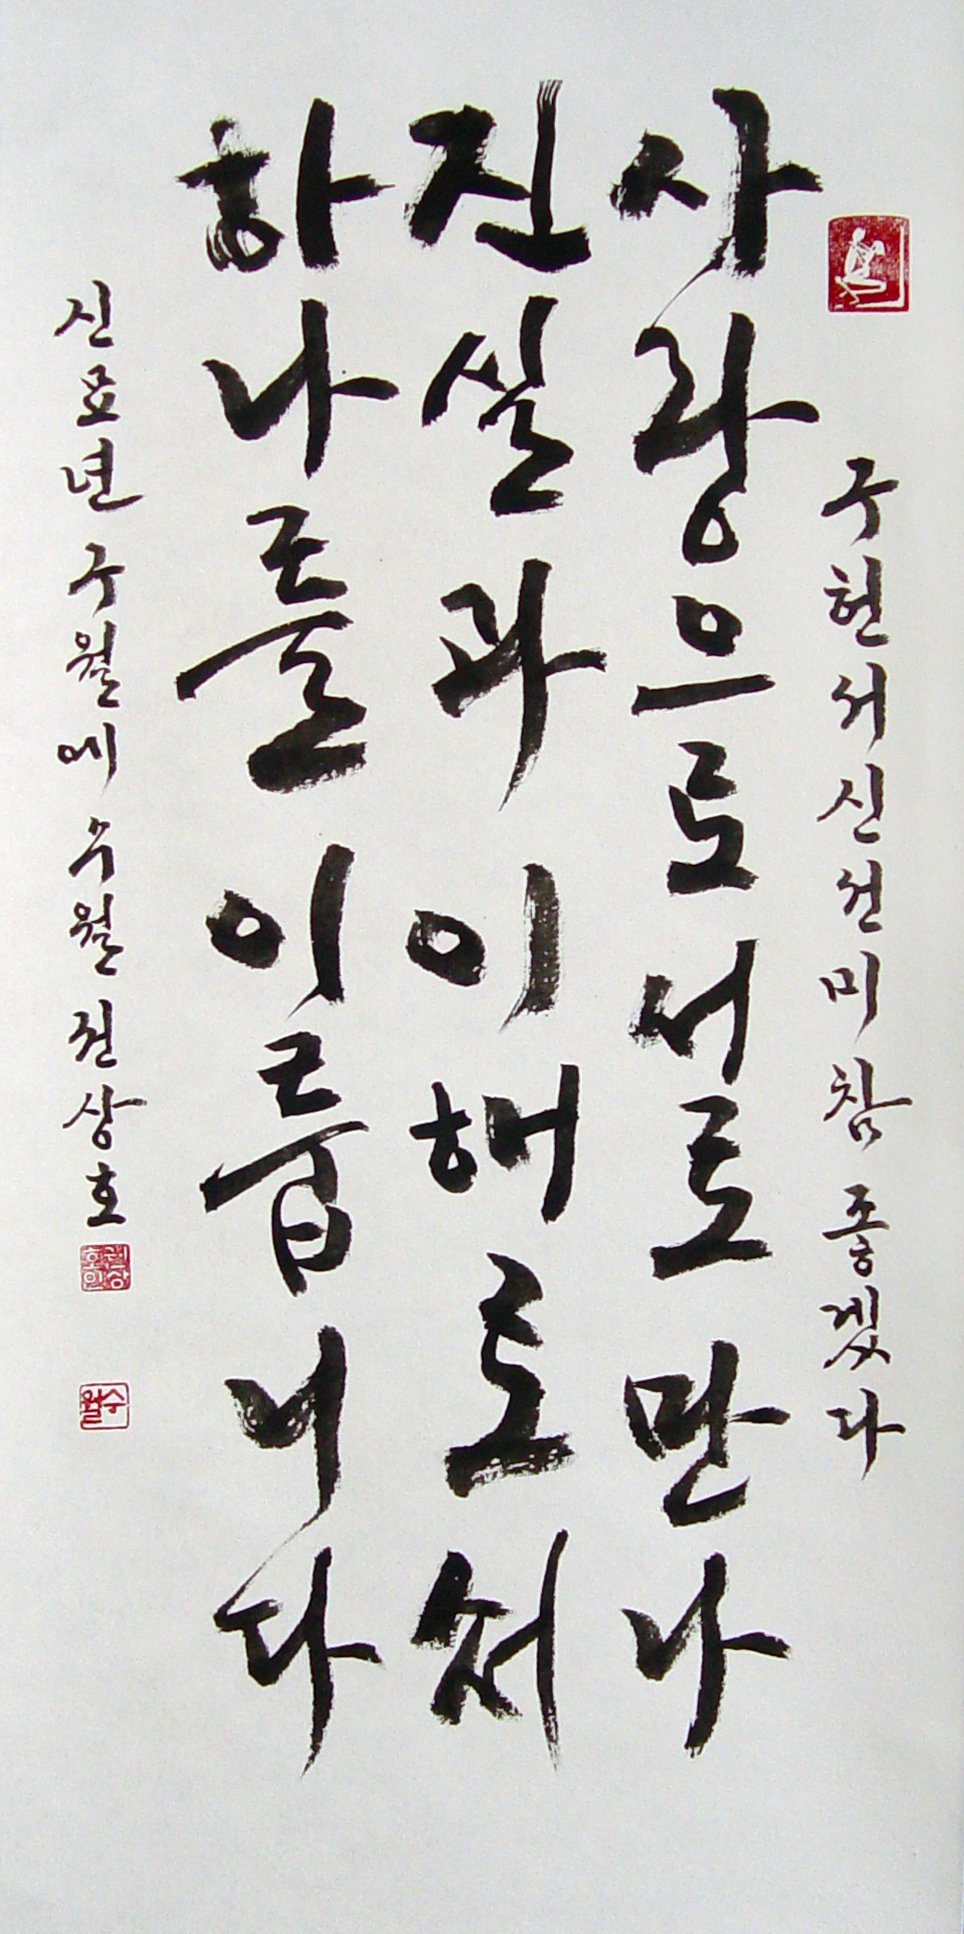 구헌서 신선미 참 좋겠다
사랑으로 서로 만나
진실과 이해로써
하나를 이룹니다
신묘년 구월에 수월 권상호
권상호인
수월